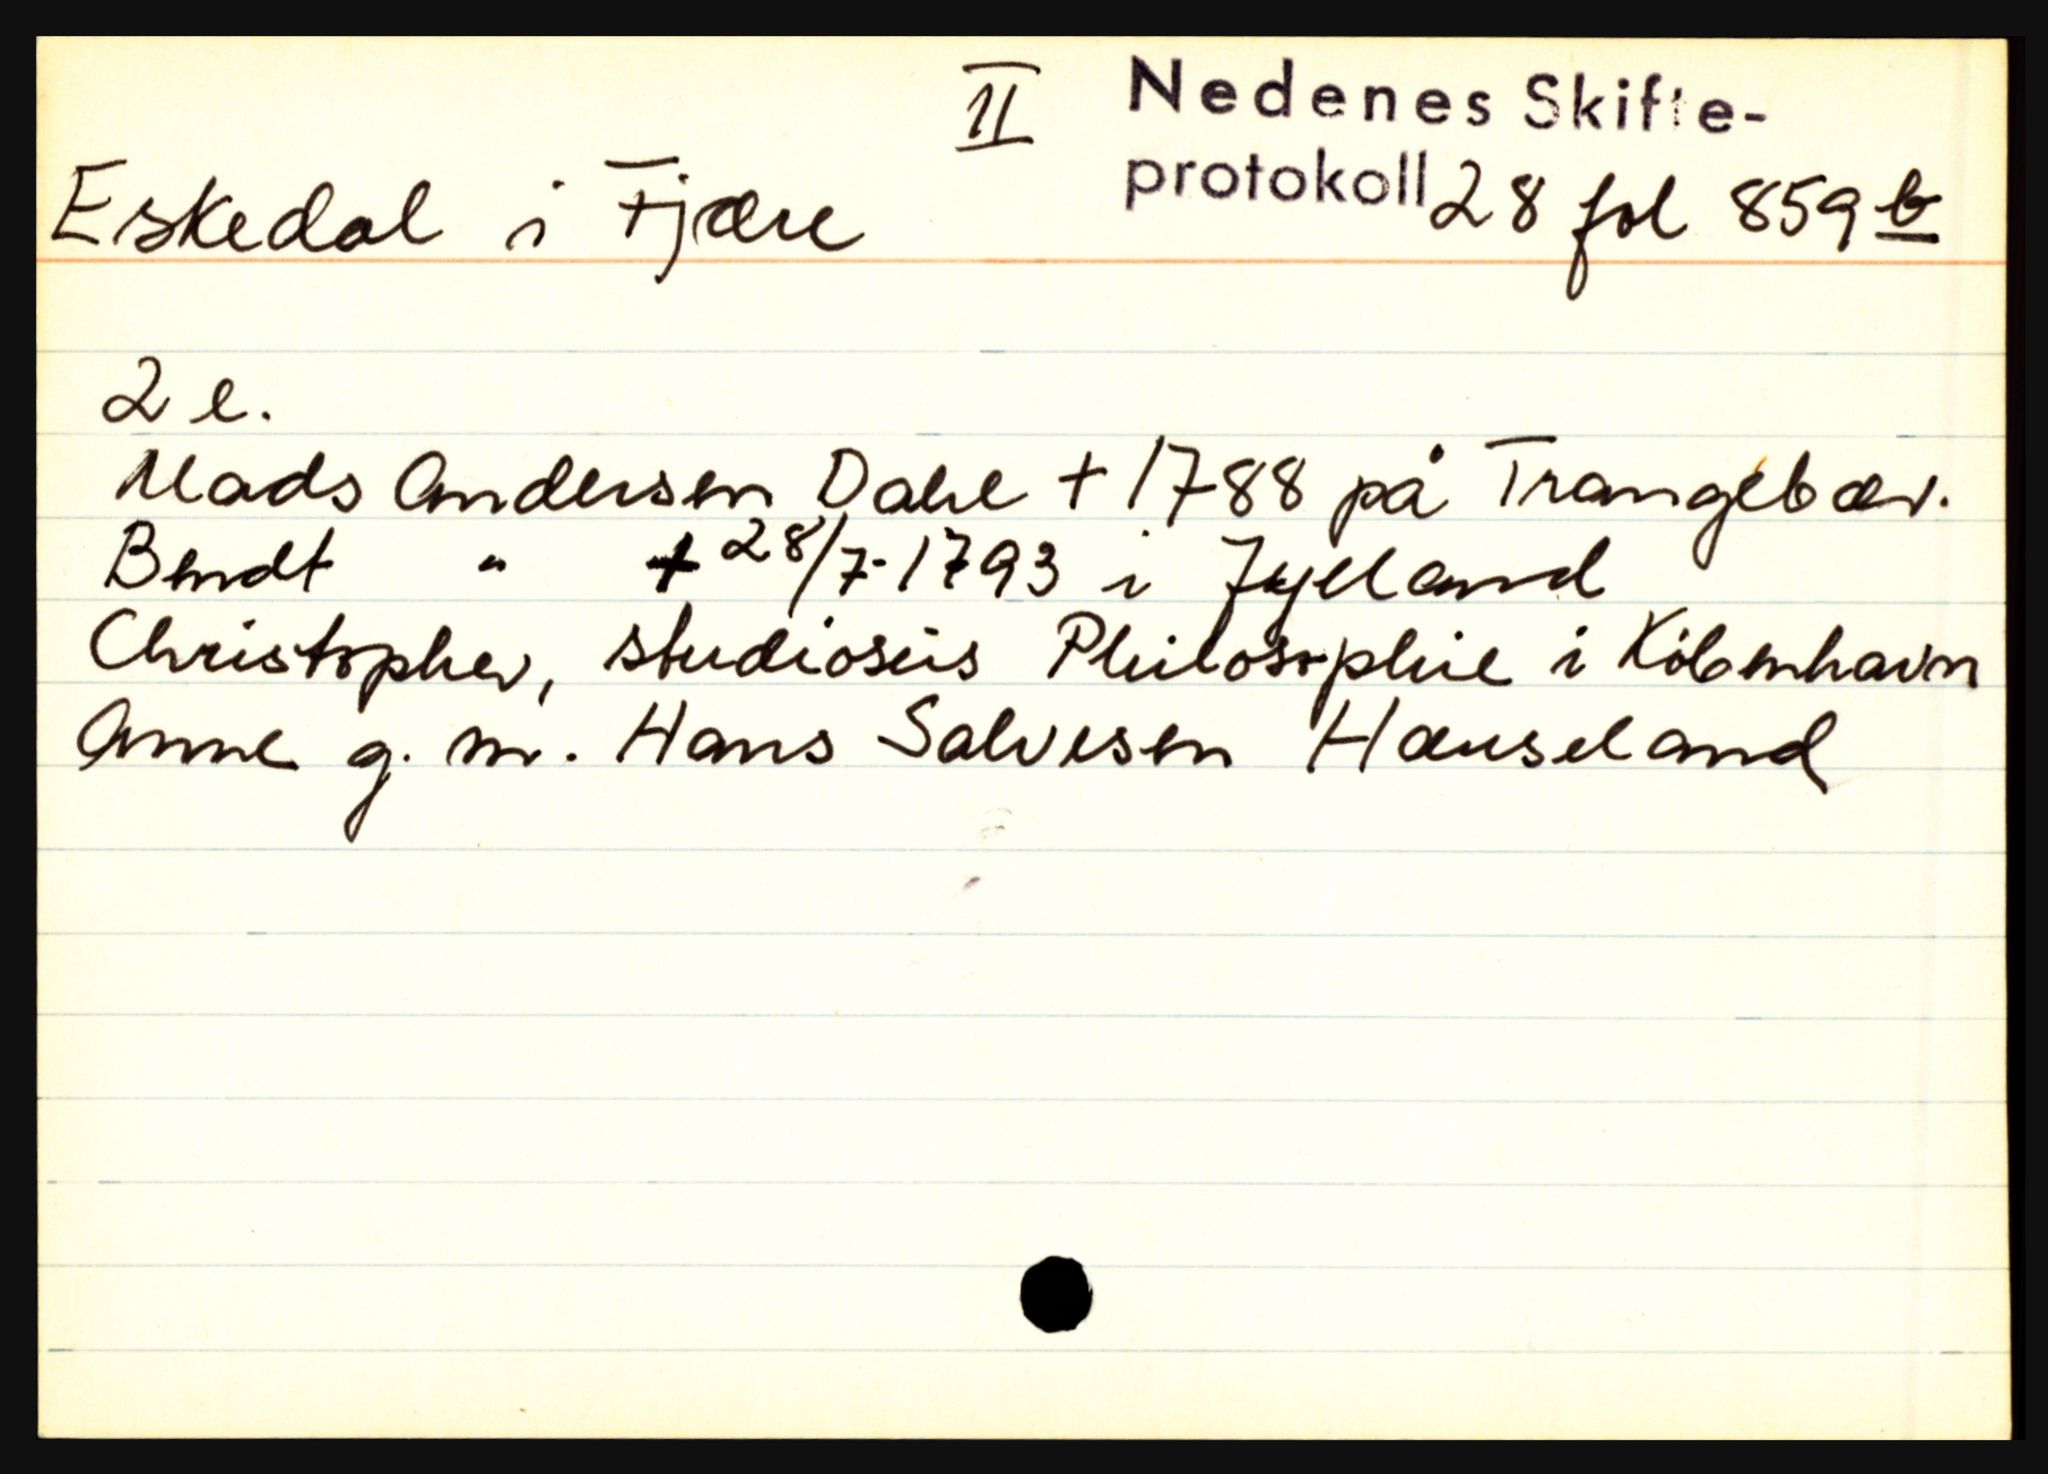 II Nedenes Skifte-
Eskedal i Fjære protokoll 28 fol 859 b
2 e.
Mads Andersen Dahl + 1788 på Trangebæv.
Bendt " + 28/7-1793 i Jylland
Christopher, studiosus Philosophie i København
Anne g. m. Hans Salvesen Hæuseland